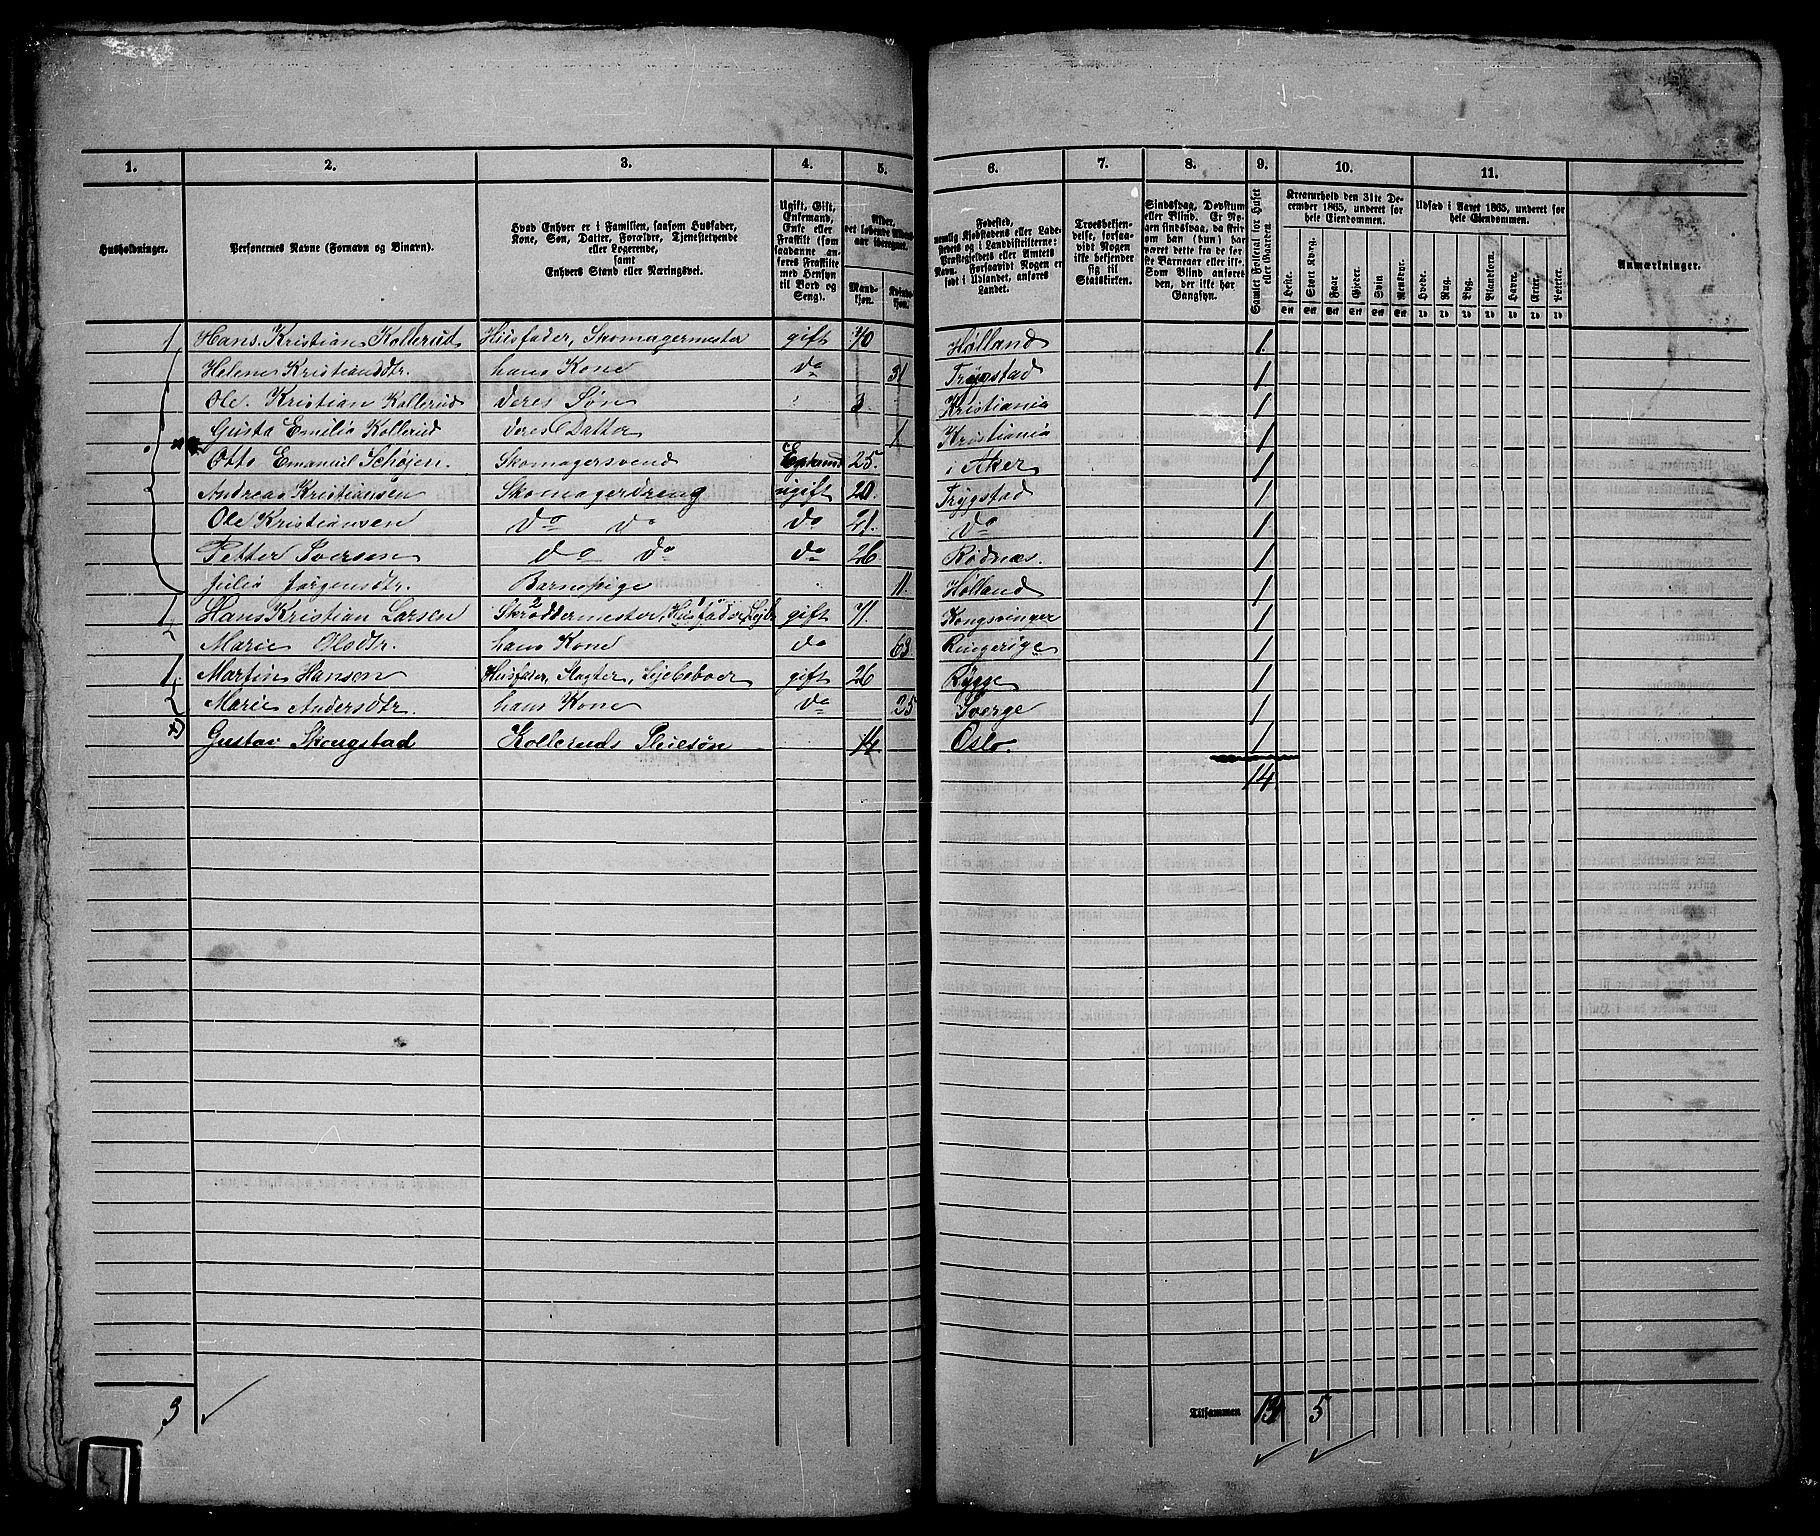 1. 2. 3. 4. 5. 6. 7. 8. 9. 10. 11.
Husholdninger.
Personernes Navne (Fornavn og Binavn).
Hvad Enhver er i Familien, saasom Husfader, Kone, Søn, Datter, Forældre, Tjenestetyende eller Logerende, samt Enhvers Stand eller Næringsvei.
Ugift, Gift, Enkemand, Enke eller Fraskilt (som saadanne anføres Fraskilte med Hensyn til Bord og Seng).
Alder, det løbende Alders-aar iberegnet.
Mandkjøn. Kvindekjøn.
Fødested, nemlig Kjøbstadens eller Ladestedets og i Landdistrikterne: Præstegjeldets eller Amtets Navn. Forsaavidt Nogen er født i Udlandet, anføres Landet.
Troesbekjendelse, forsaavidt Nogen ikke bekjender sig til Statskirken.
Sindssvag, Døvstum eller Blind. Er Nogen sindssvag, da skrives om han (hun) har været dette fra de første Barneaar eller ikke. Som Blind anføres den, der ikke har Gangsyn.
Samlet Folketal for Huset eller Gaarden.
Kreaturhold den 31te December 1865, underet for hele Eiendommen.
Heste. Stort Kvæg. Faar Gjeder. Svin Rensdyr.
Udsæd i Aaret 1865, underet for hele Eiendommen.
Hvede. Rug. Byg. Blandkorn. Havre. Erter. Poteter.
Anmærkninger.
1 Hans Kristian Kollerud Husfader, Skomagermester gift 40 Hølland 1
Helene Kristiansdtr. hans Kone do 31 Trygstad 1
Ole Kristian Kollerud deres Søn 3 Kristiania 1
Gusta Emilie Kollerud deres Datter 1 Kristiania 1
Otto Emanuel Schøjen. Skomagersvend Enkemd 25. i Aker 1
Andreas Kristiansen Skomagerdreng ugift 20. Trygstad 1
Ole Kristiansen do do do 21. do 1
Petter Iversen do do do 26 Rødnæs. 1
Julie Jørgensdtr. Barnepige 11. Hølland 1
1 Hans Kristian Larsen Skræddermester, Husfader, gift 71. Kongsvinger 1
Marie Olsdtr. hans Kone do 63. Ringerige 1
1. Martin Hansen Husfader, Slagter, Lejeboer gift 26 Rygge 1
Marie Andersdtr. hans Kone do 25 Sverge 1
Gustav Skougstad Kolleruds Pleiesøn 14 Oslo. 1
14.
3 Tilsammen 5